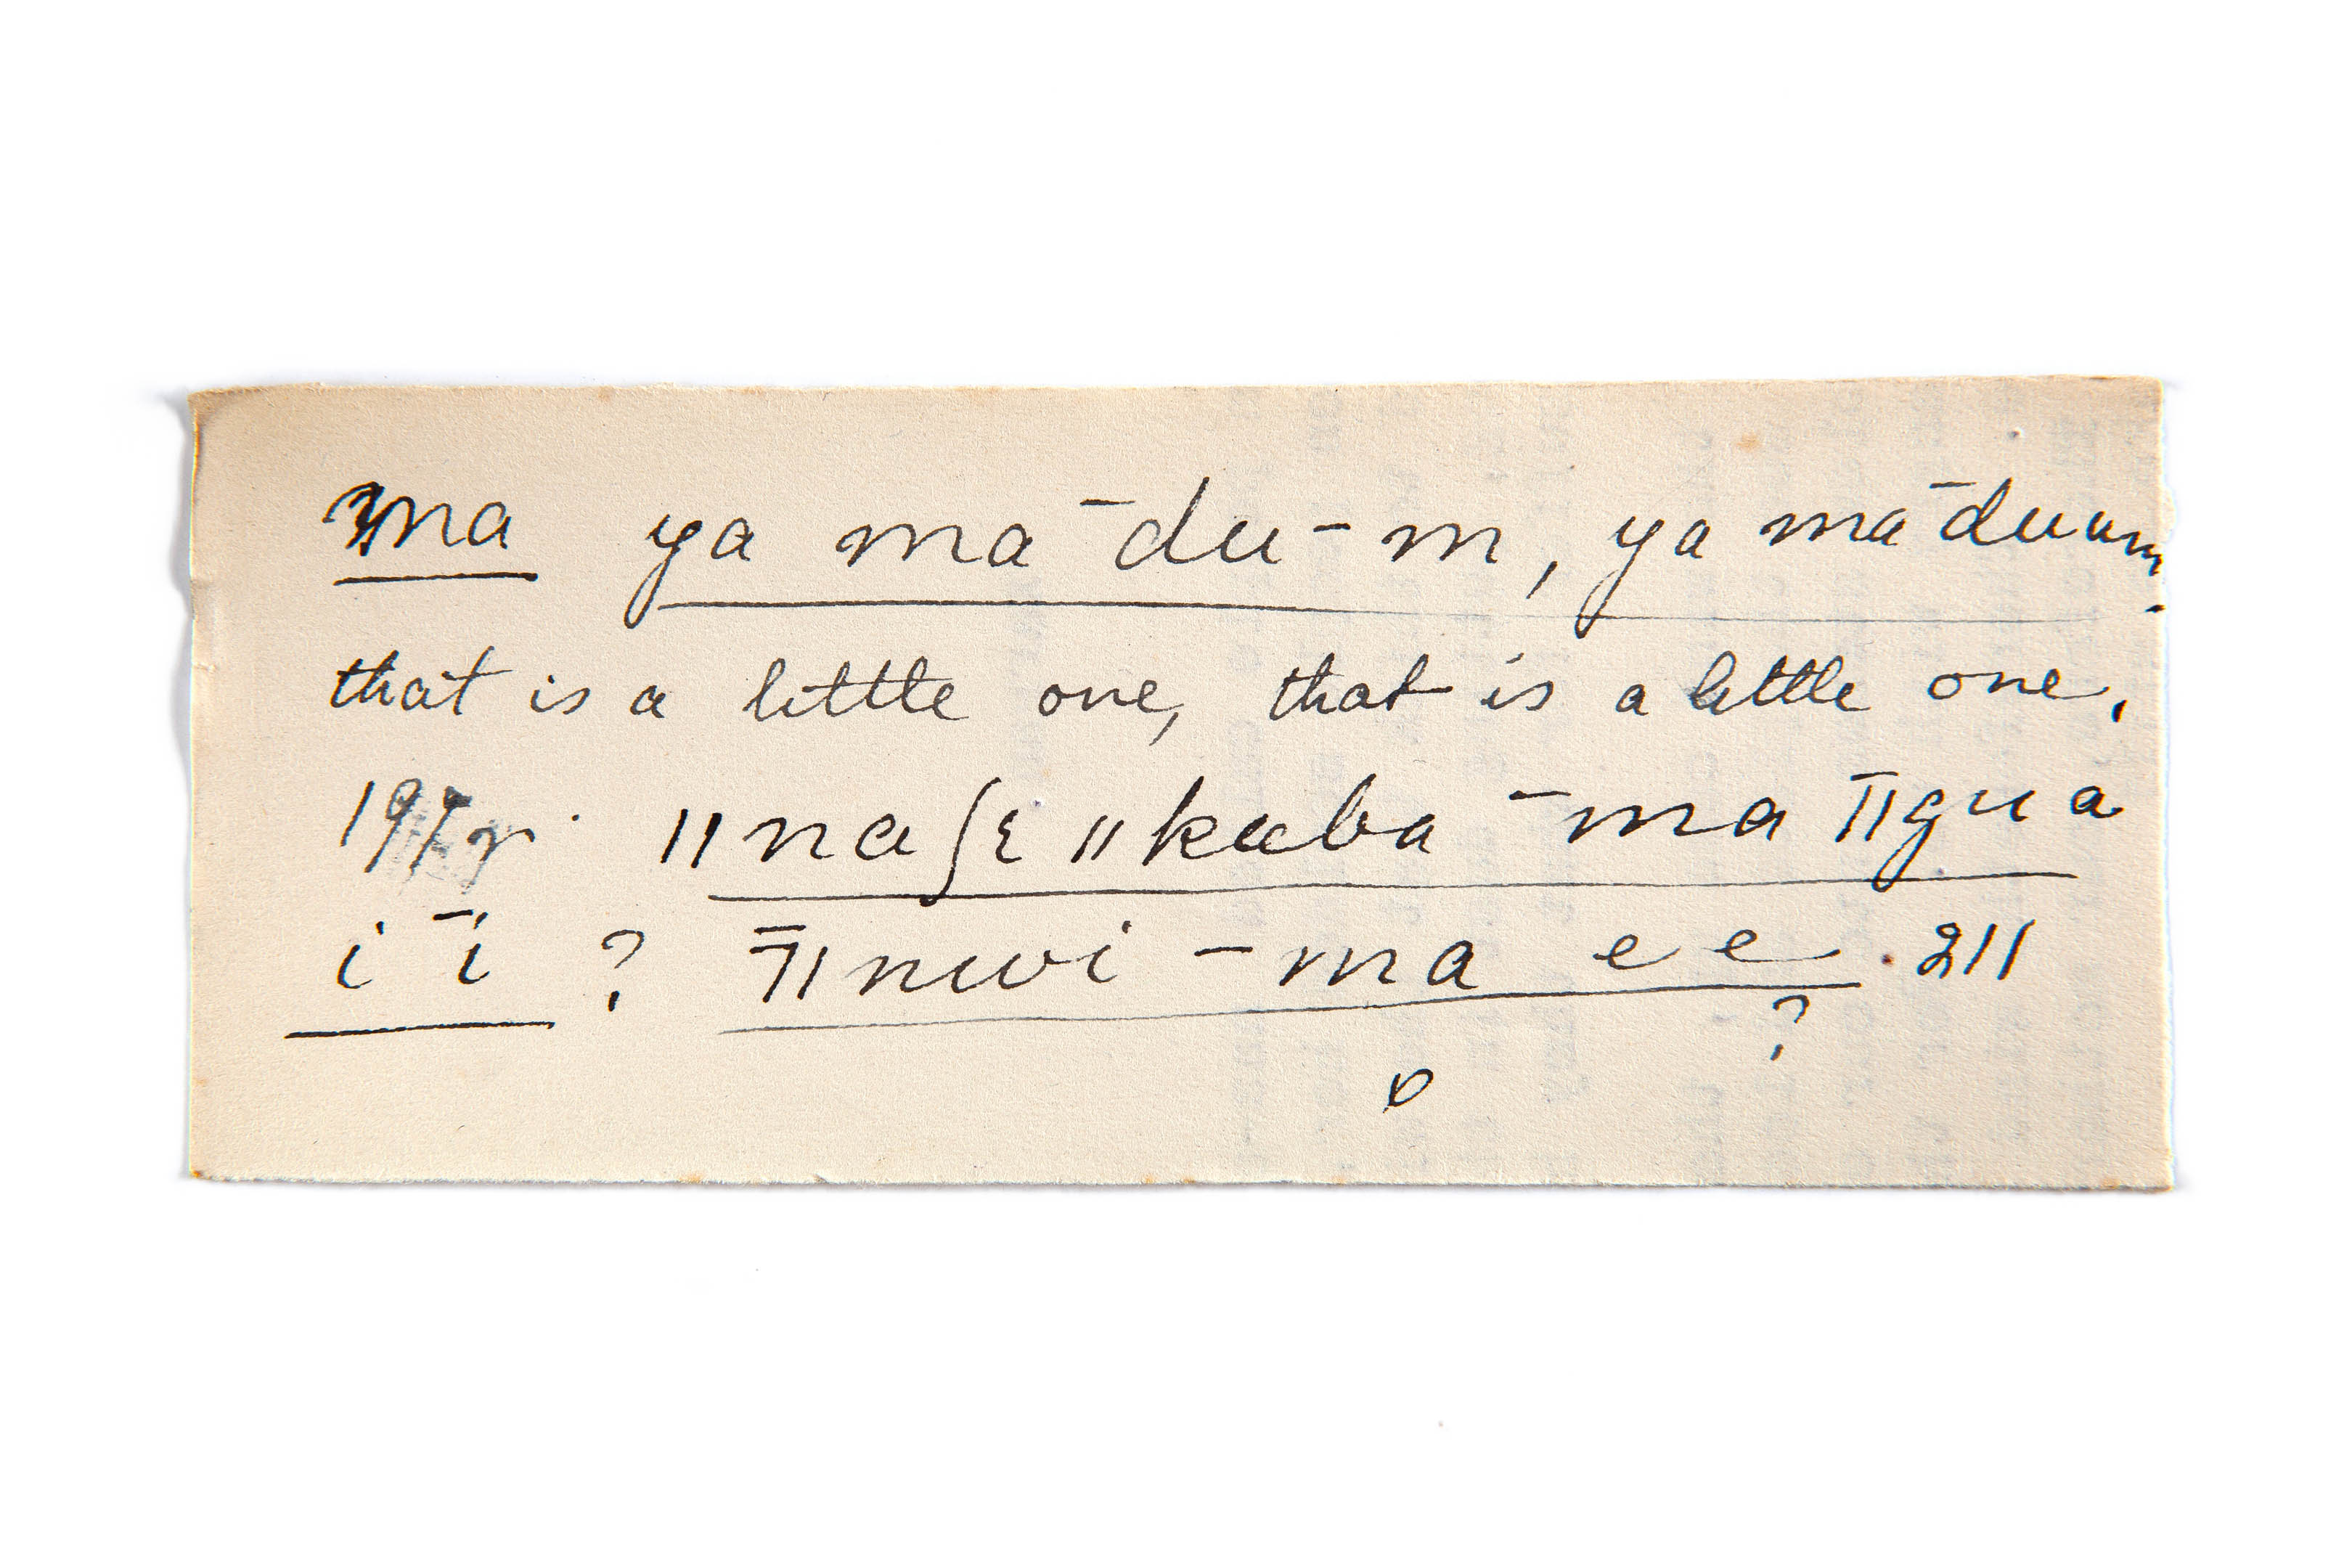 ma ya ma ¯du-m, ya ma ¯duum
that is a little one, that is a little one.
ǁnaʃɛ ǁkuba ¯ma ¯ǁgua
i ¯i ? ¯ǁnwi -ma e e . 211
?